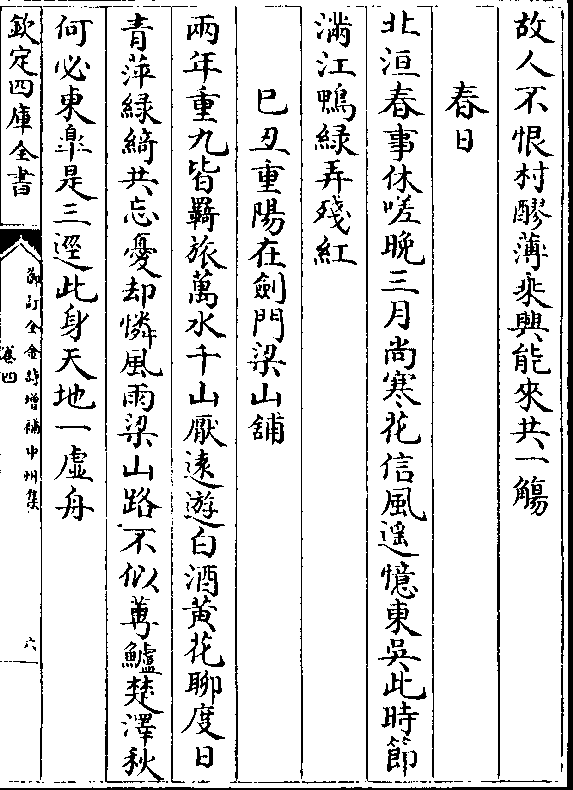 故人不恨村醪薄乘興能來共一觴
春日
北洹春事休嗟晚三月尚寒花信風遥憶東吳此時節
滿江鴨綠弄殘紅
己丑重陽在劍門梁山舖
兩年重九皆羇旅萬水千山厭遠遊白酒黄花聊度日
青萍緑綺共忘憂却憐風雨梁山路不似蓴鱸楚澤秋
何必東臯是三逕此身天地一虛舟
欽定四庫全書
御訂全金詩增補中州集
卷四
六